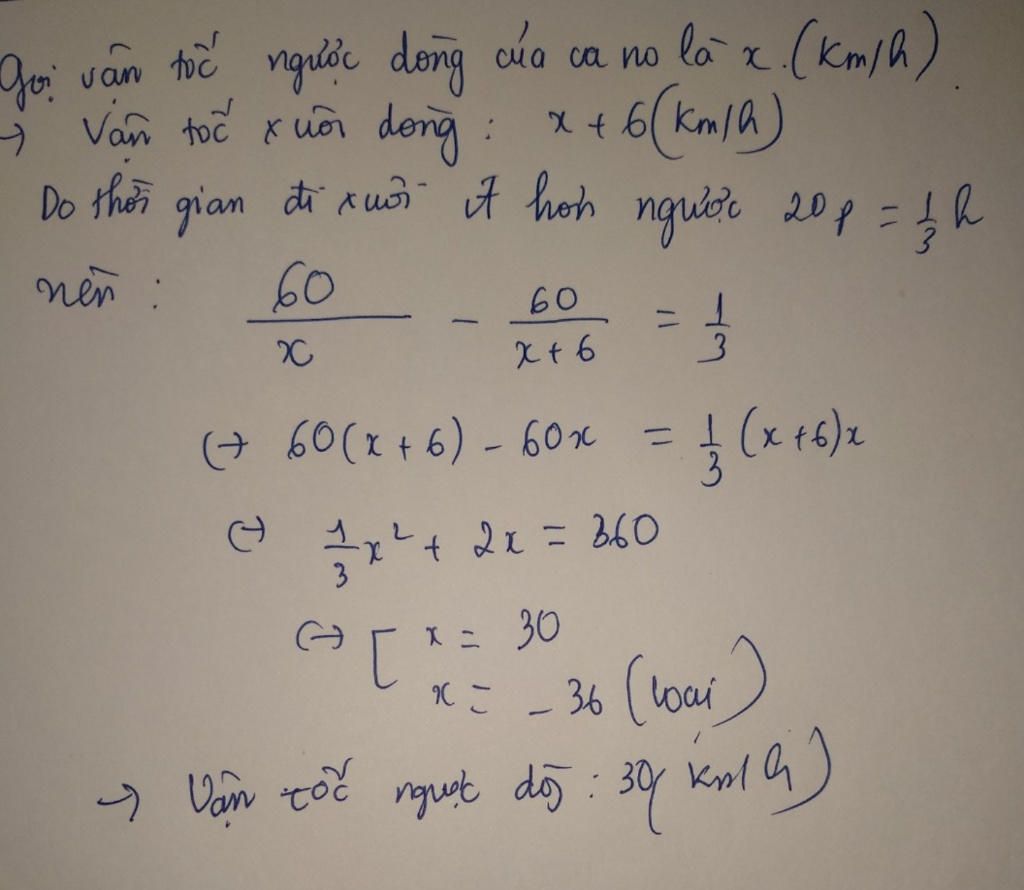 Gọi vận tốc ngược dòng của ca no là x (km/h).
→ Vận tốc xuôi dòng : x + 6 (km/h)
Do thời gian đi xuôi ít hơn ngược 20p = 1/3 h
nên : 60/x - 60/(x+6) = 1/3
(→ 60(x+6) - 60x = 1/3 (x+6)x
(→ 1/3 x² + 2x = 360
(→ [ x = 30
x = -36 (loại)
→ Vận tốc ngược dòg : 30 (km/h)